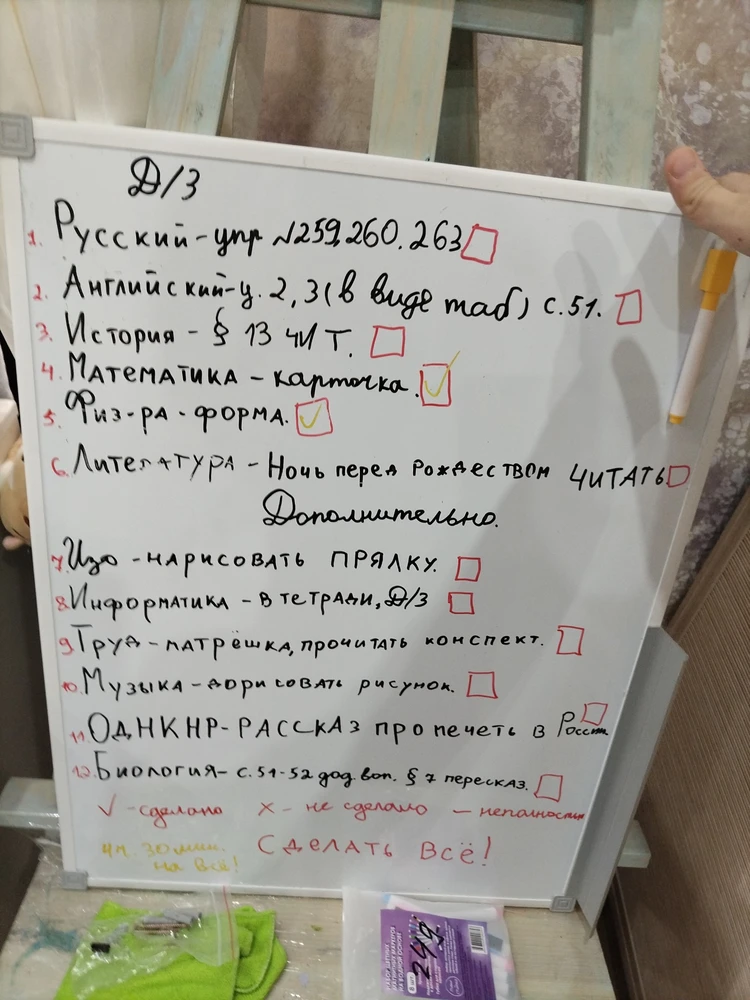 Д/З
1. Русский - упр №259, 260, 263
2. Английский - у. 2, 3 (в виде таб) с. 51.
3. История - § 13 ЧИТ.
4. Математика - карточка.
5. Физ-ра - форма.
6. Литература - Ночь перед Рождеством ЧИТАТЬ
Дополнительно.
7. Изо - нарисовать ПРЯЛКУ.
8. Информатика - в тетради, Д/З
9. Труд - матрёшка, прочитать конспект.
10. Музыка - дорисовать рисунок.
11. ОДНКНР - РАССКАЗ про печеть в
12. Биология - с. 51-52 § 7 пересказ.
✓ - сделано X - не сделано — неполностью
4ч. 30 мин. на всё!
Сделать всё!
249